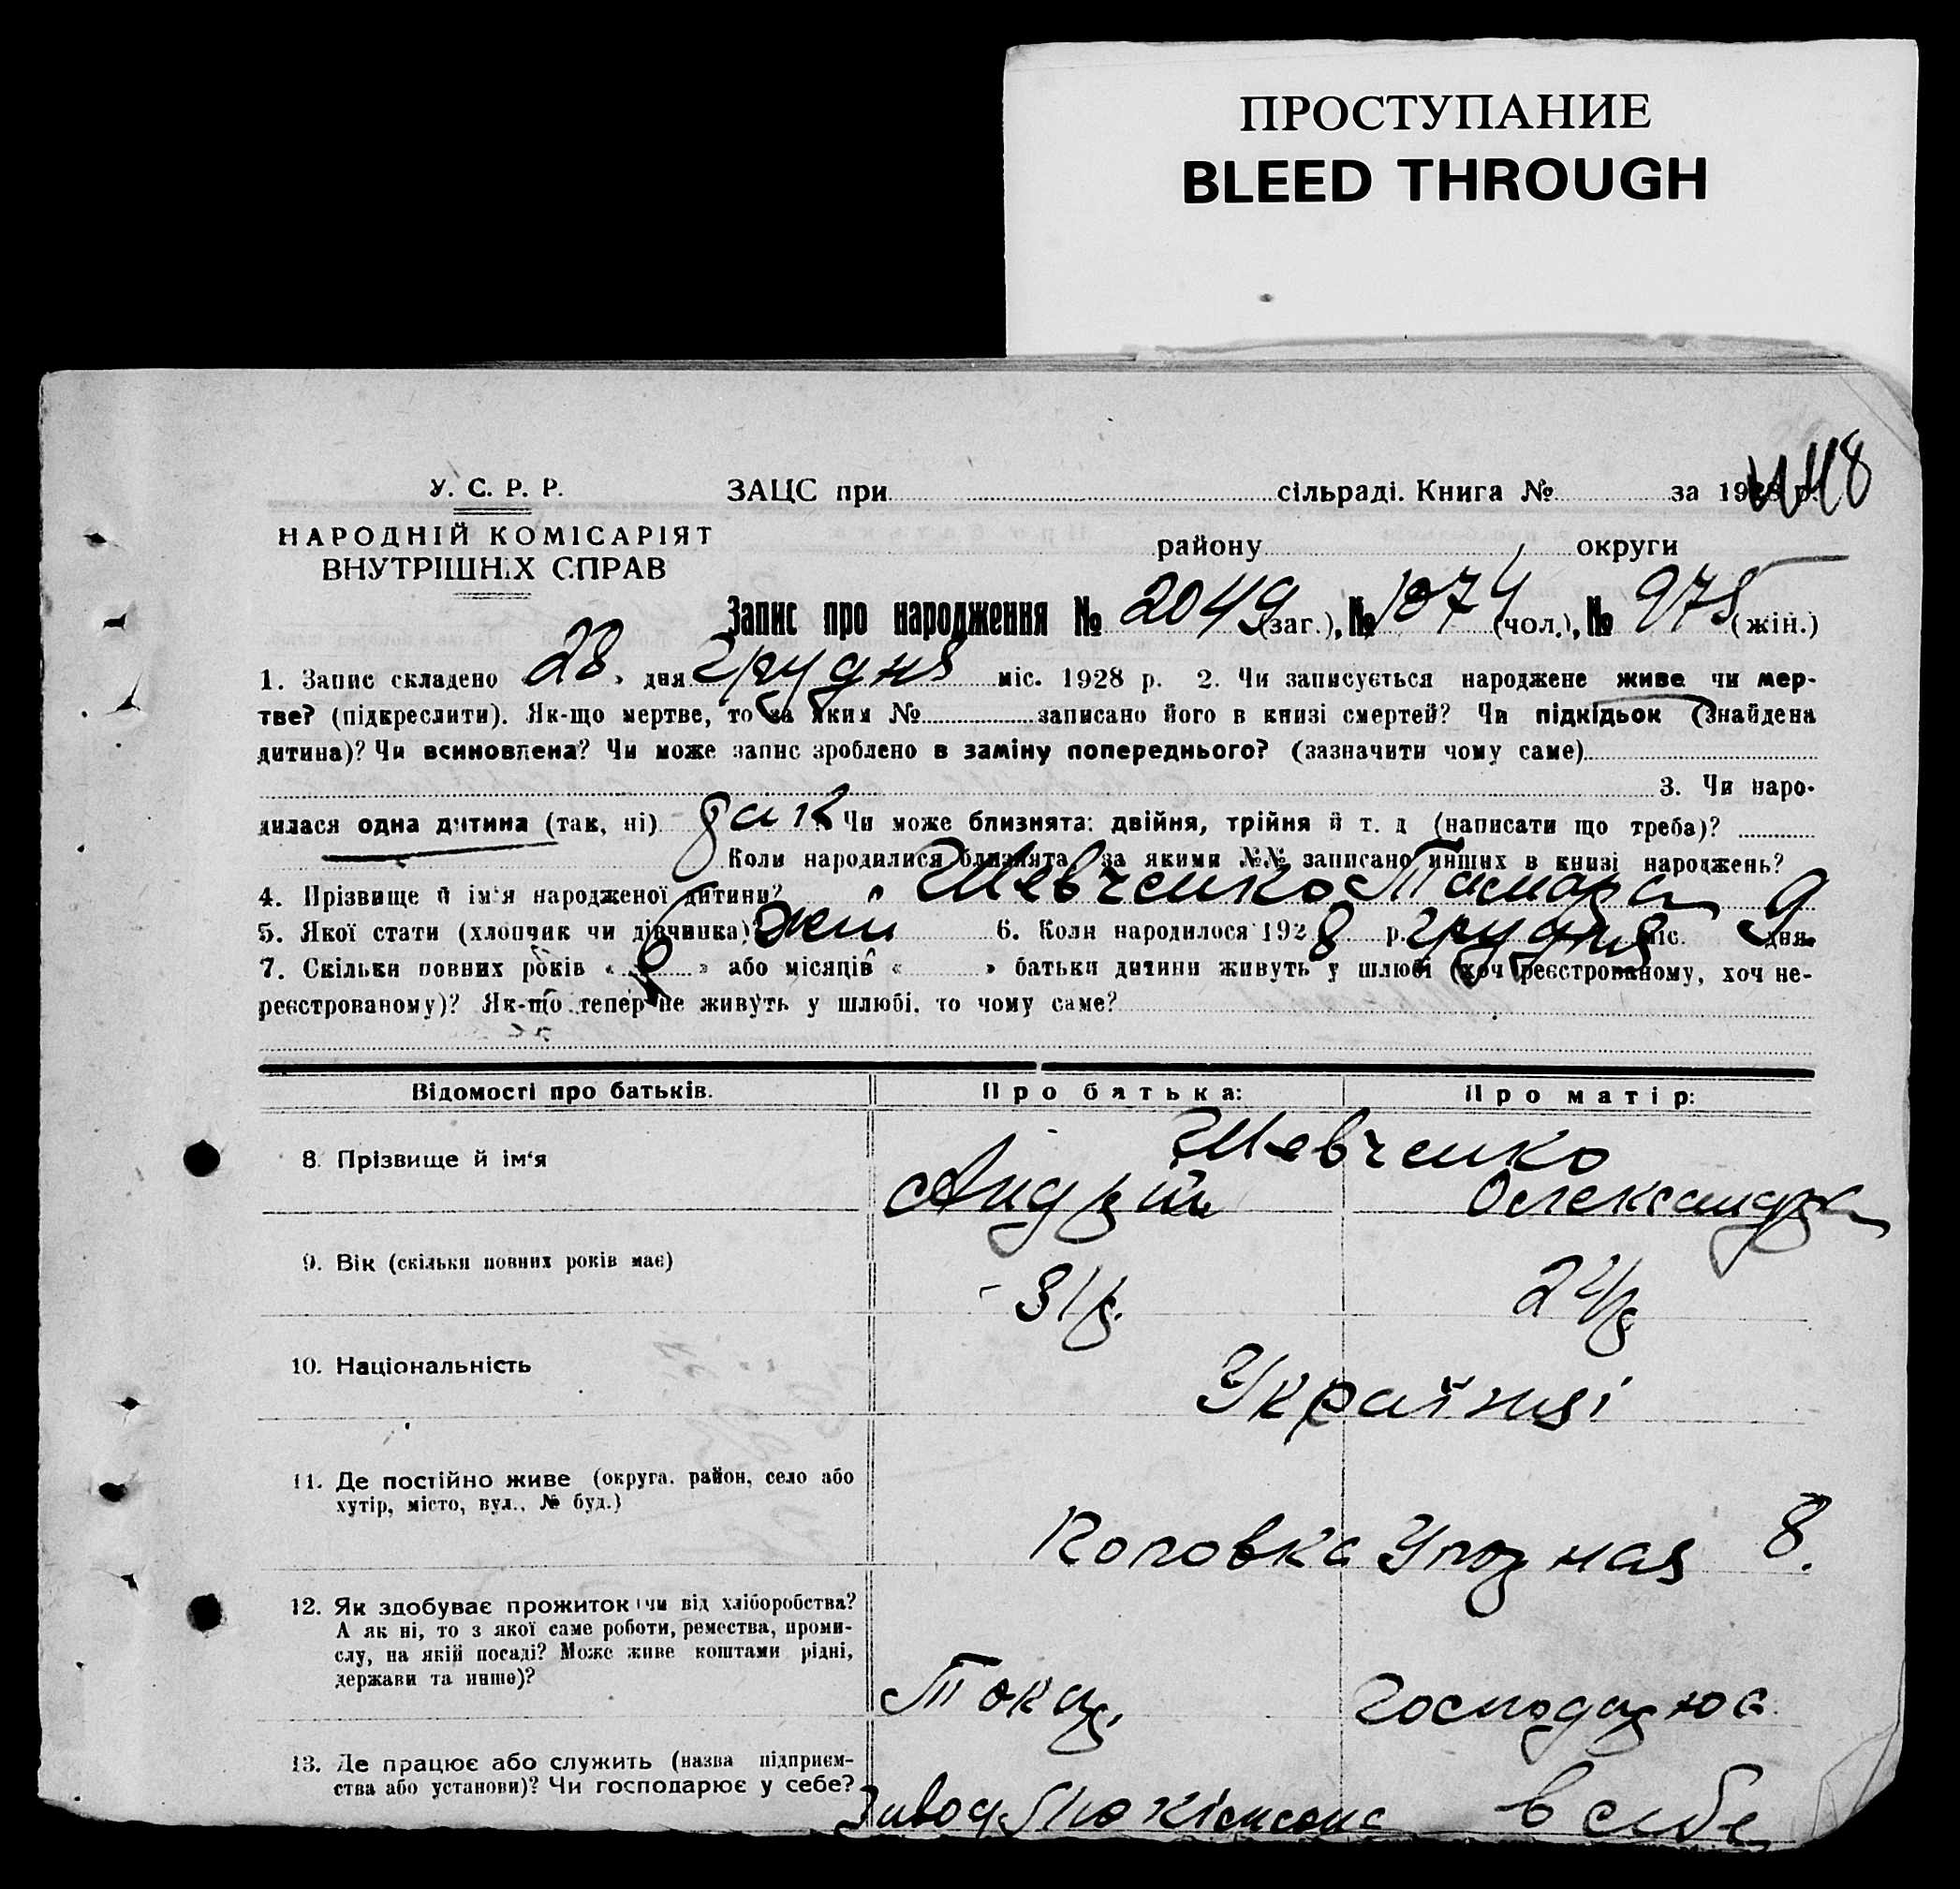 ПРОСТУПАНИЕ
BLEED THROUGH
У. С. Р. Р.
НАРОДНІЙ КОМІСАРІЯТ
ВНУТРІШНІХ СПРАВ
ЗАЦС при сільраді. Книга № за 1928 р.
району округи
Запис про народження № 2049 (заг.), № 1074 (чол.), № 975 (жін.)
1. Запис складено 28 » дня грудня міс. 1928 р. 2. Чи записується народжене живе чи мер-
тве? (підкреслити). Як-що мертве, то за яким № записано його в книзі смертей? Чи підкідьок (знайдена
дитина)? Чи всиновлена? Чи може запис зроблено в заміну попереднього? (зазначити чому саме)
3. Чи наро-
дилася одна дитина (так, ні) так Чи може близнята: двійня, трійня й т. д (написати що треба)?
Коли народилися близнята, за якими №№ записано инших в книзі народжень?
4. Прізвище й ім'я народженої дитини? Шевченко Тамара
5. Якої стати (хлопчик чи дівчинка)? жін 6. Коли народилося 1928 р. грудня міс. 9 дня.
7. Скільки повних років « 6 » або місяців « » батьки дитини живуть у шлюбі (хоч реєстрованому, хоч не-
реєстрованому)? Як-що тепер не живуть у шлюбі, то чому саме?
Відомості про батьків. Про батька: Про матір:
8. Прізвище й ім'я Шевченко
Андрій Олександра
9. Вік (скільки повних років має) 31 р. 24 р
10. Національність Українці
11. Де постійно живе (округа, район, село або
хутір, місто, вул., № буд.)
8.
12. Як здобуває прожиток чи від хліборобства?
А як ні, то з якої саме роботи, ремества, проми-
слу, на якій посаді? Може живе коштами рідні,
держави та инше)?
Токар. Господарює
13. Де працює або служить (назва підприєм-
ства або установи)? Чи господарює у себе?
Завод в себе